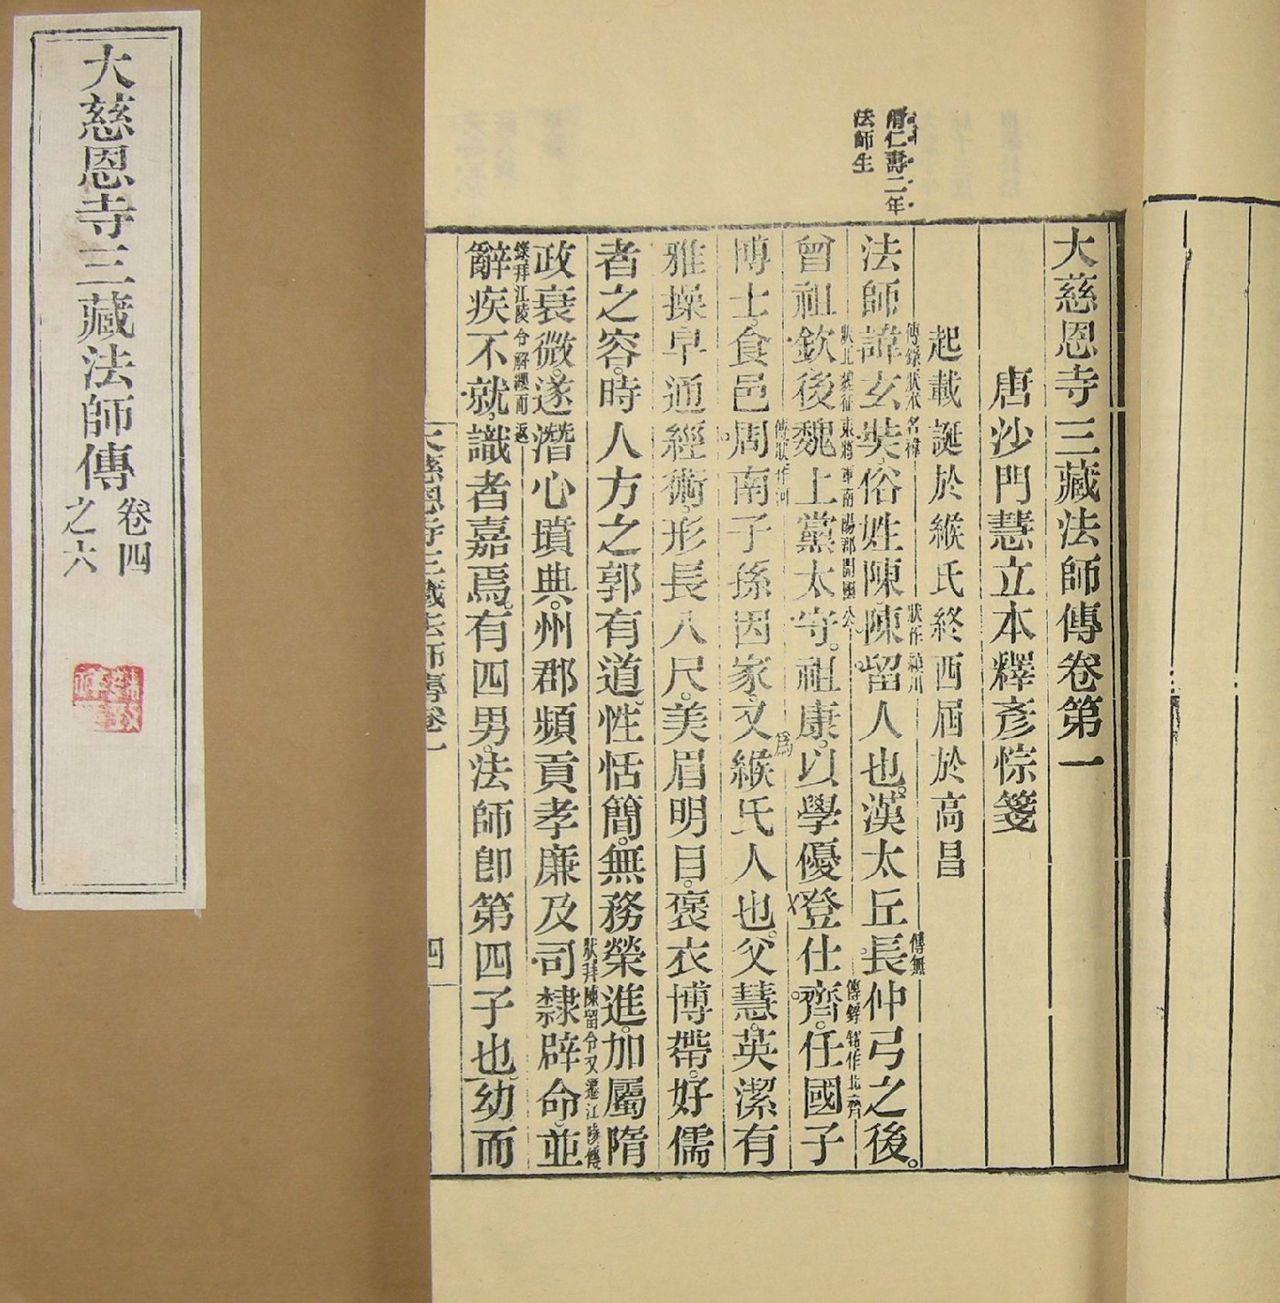 大慈恩寺三藏法師傳
卷四
之六
隋仁壽二年
法師生
大慈恩寺三藏法師傳卷第一
唐沙門慧立本釋彥悰箋
起載誕於緱氏終西屆於高昌
法師諱玄奘俗姓陳陳留人也漢太丘長仲弓之後。
曾祖欽後魏上黨太守。祖康。以學優登仕齊。任國子
博士。食邑周南子孫因家。又緱氏人也。父慧。英潔有
雅操早通經術。形長八尺。美眉明目。褒衣博帶。好儒
者之容。時人方之郭有道。性恬簡。無務榮進。加屬隋
政衰微。遂潛心墳典。州郡頻貢孝廉及司隸辟命。並
辭疾不就。識者嘉焉。有四男。法師卽第四子也。幼而
大慈恩寺三藏法師傳卷一
四